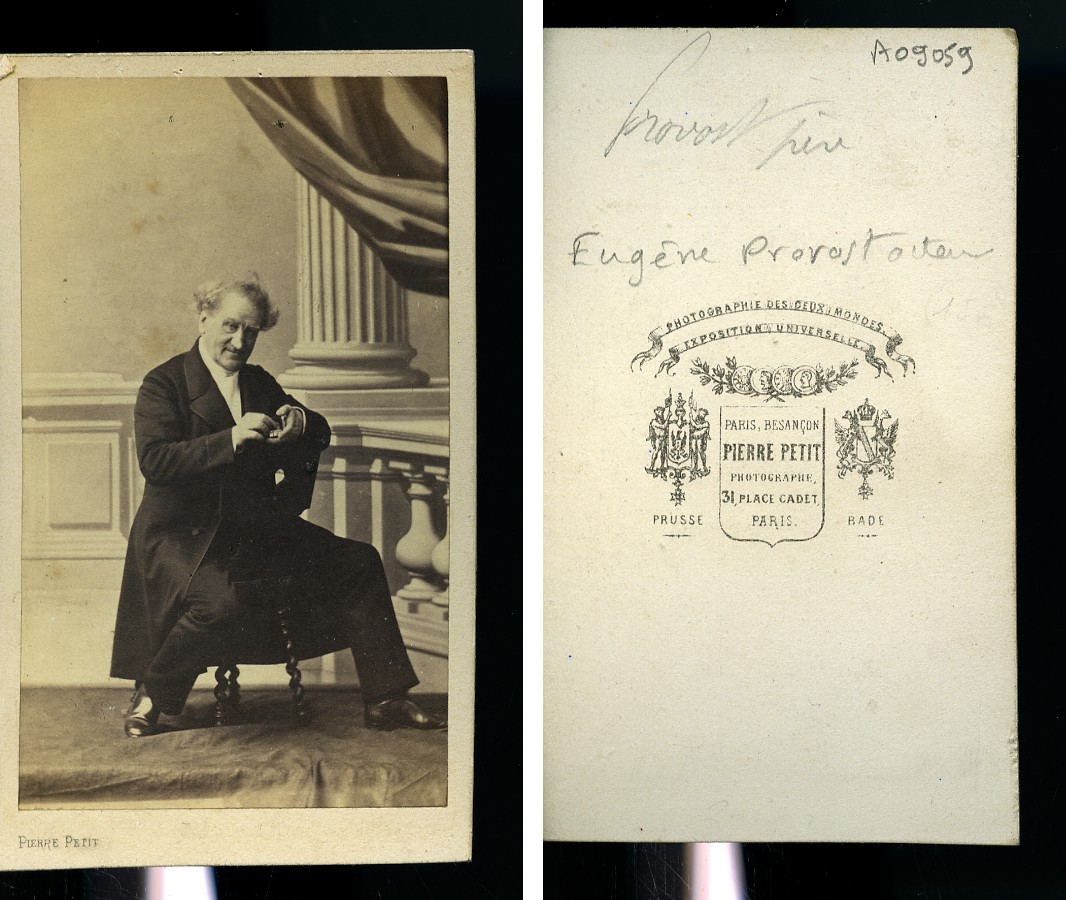 PIERRE PETIT
A09059
Provost père
Eugène Provost acteur
PHOTOGRAPHIE DES DEUX MONDES.
EXPOSITION UNIVERSELLE.
PARIS, BESANÇON
PIERRE PETIT
PHOTOGRAPHE,
31, PLACE CADET
PARIS.
PRUSSE
BADE